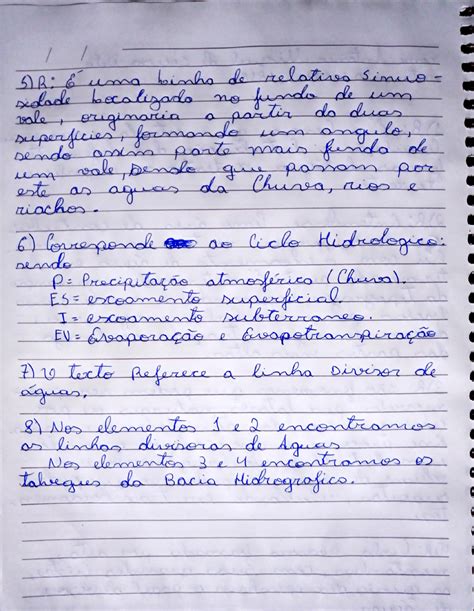 5) R: É uma linha de relativa sinuo-
sidade localizado no fundo de um
vale, originaria a partir da duas
superficies, formando um angulo,
sendo assim parte mais funda de
um vale, sendo que passam por
este as aguas da Chuva, rios e
riachos.
6) Corresponde ao Ciclo Hidrologico:
sendo
P= Precipitação atmosférica (Chuva).
ES= escoamento superficial.
I= escoamento subterraneo.
EV= Evaporação e Evapotranspiração
7) O texto Referece a linha Divisor de
águas.
8) Nos elementos 1 e 2 encontramos
as linhas divisoras de Aguas
Nos elementos 3 e 4 encontramos os
talvegues da Bacia Hidrografico.